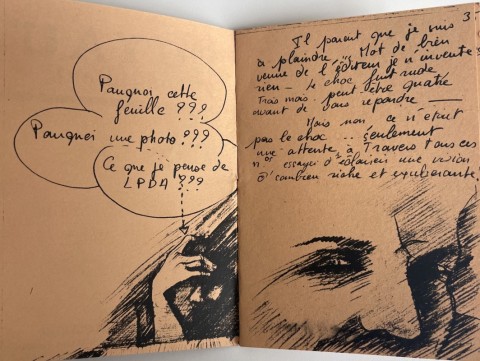 Pourquoi cette
feuille ???
Pourquoi une photo ???
Ce que je pense de
LPDA ???
3
Il parait que je suis
à plaindre... Mot de bien
venue de l'éditeur je n'invente
rien - le choc fut rude
Trois mois peut être quatre
avant de vous repondre
Mais non ce n'était
pas le choc... seulement
une attente à Travers tous ces
n°s essayer d'éclaircir une vision
Ô combien riche et exubérante